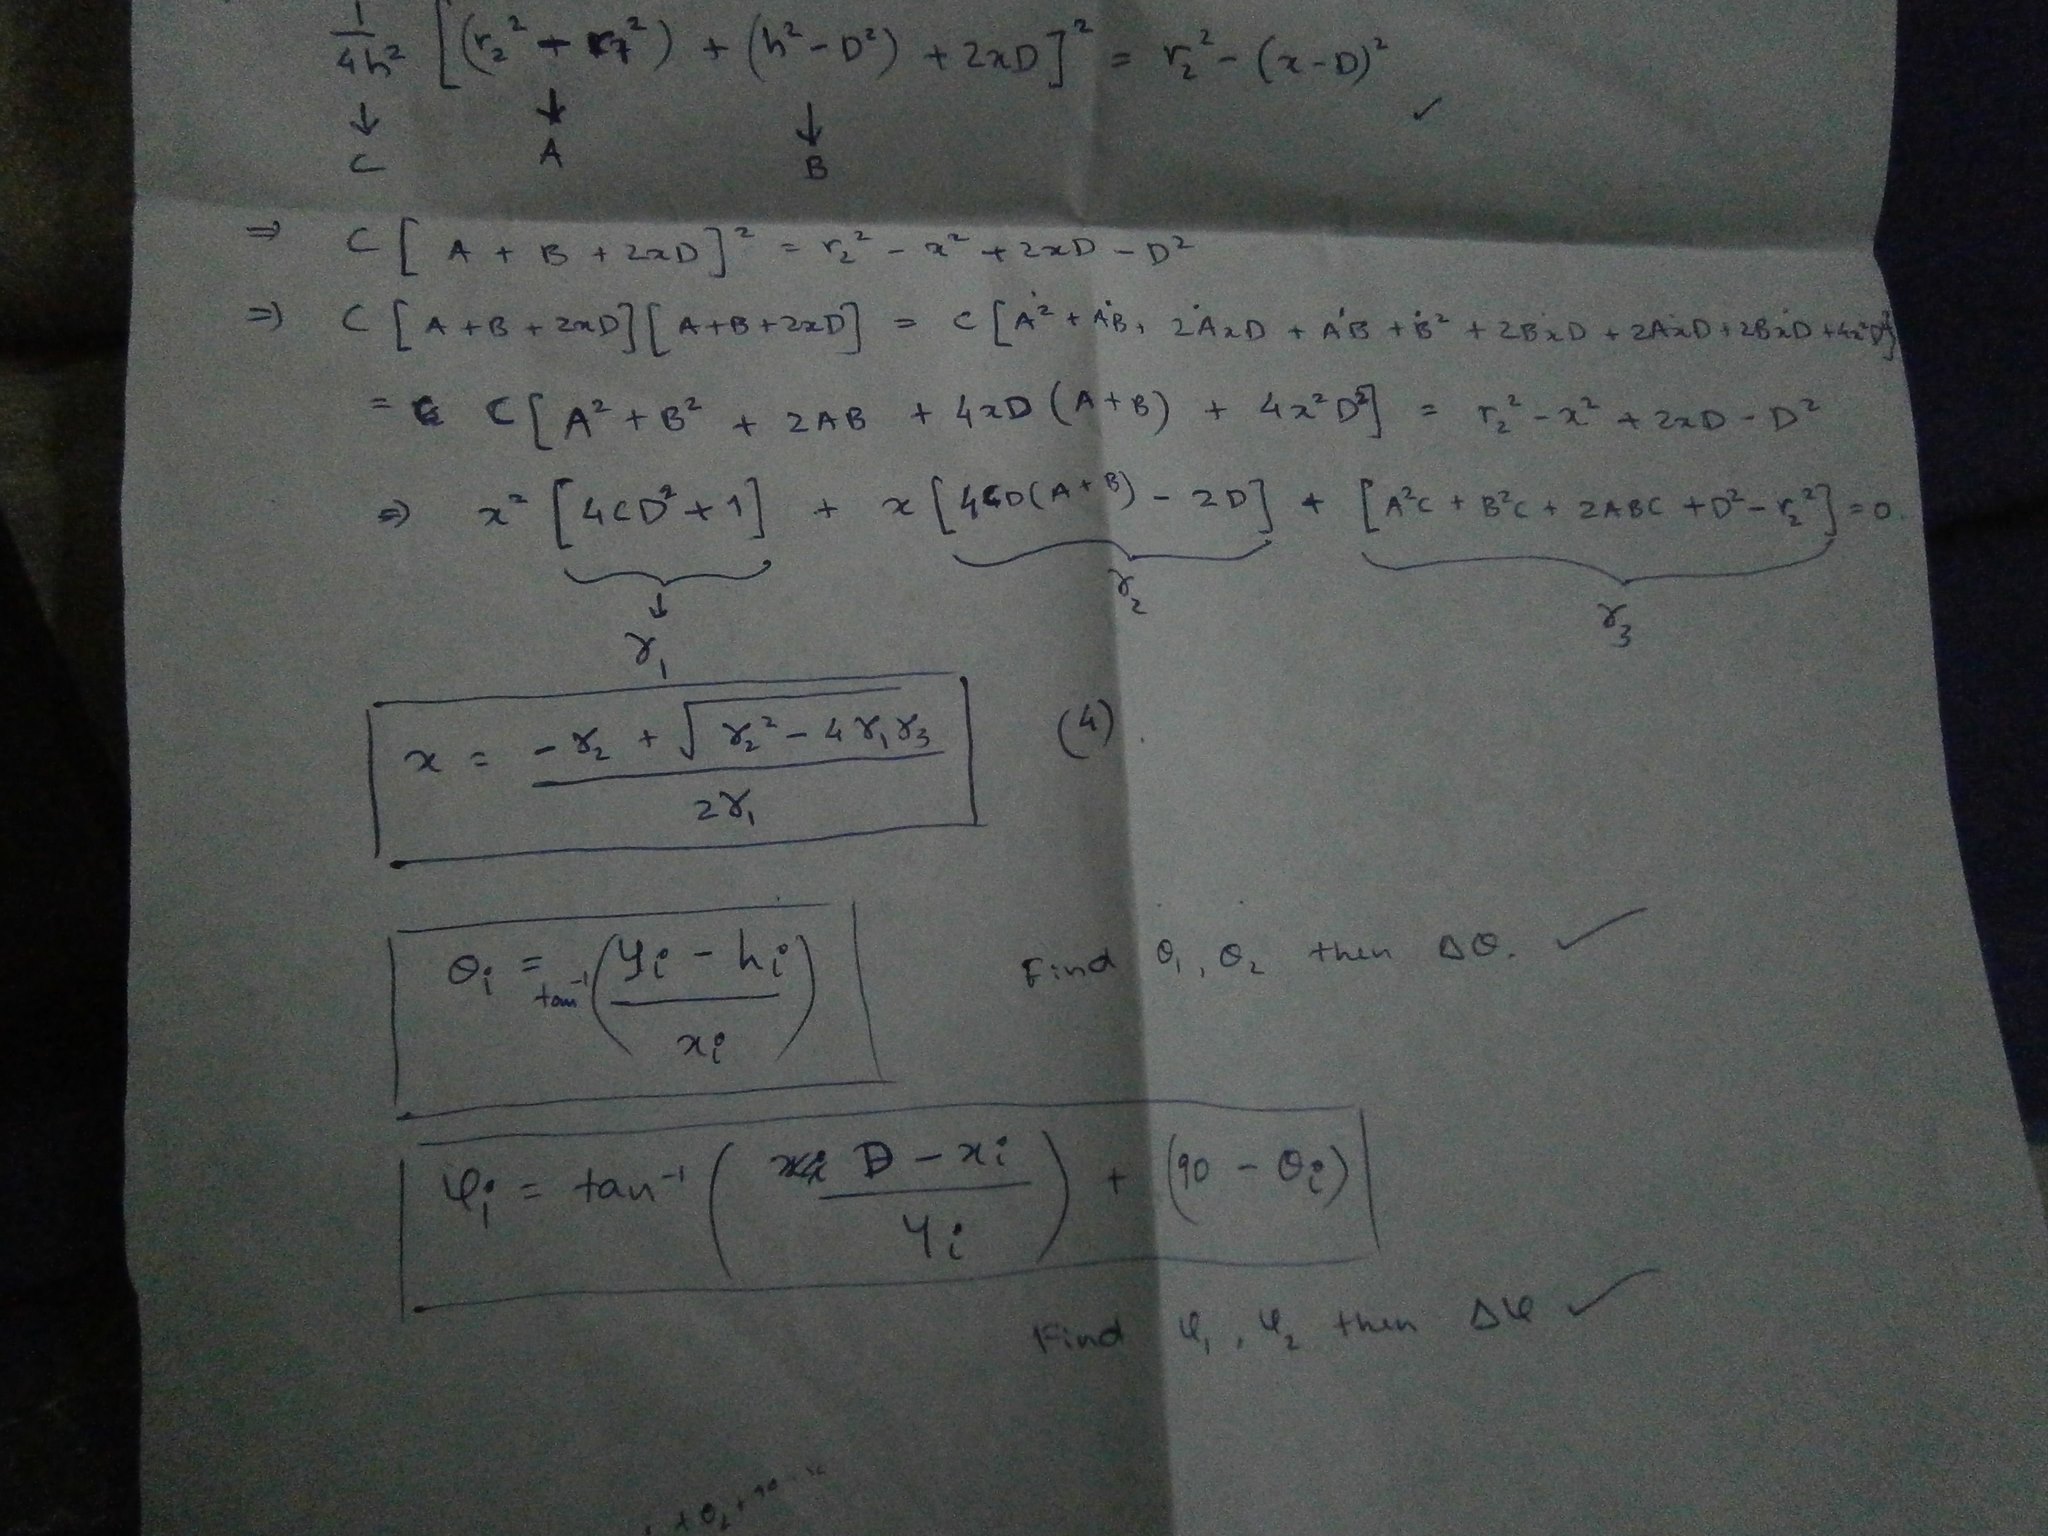 1/4h² [(r₂² - r₁²) + (h² - D²) + 2xD]² = r₂² - (x-D)² ✓
↓ ↓ ↓
C A B
⇒ C [A + B + 2xD]² = r₂² - x² + 2xD - D²
⇒ C [A+B+2xD][A+B+2xD] = C [A² + AB + 2AxD + AB + B² + 2BxD + 2AxD + 2BxD + 4x²D²]
= C [A² + B² + 2AB + 4xD (A+B) + 4x²D²] = r₂² - x² + 2xD - D²
⇒ x² [4CD² + 1] + x [4CD(A+B) - 2D] + [A²C + B²C + 2ABC + D² - r₂²] = 0.
↓
γ₁ γ₂ γ₃
x = (-γ₂ + √(γ₂² - 4γ₁γ₃)) / 2γ₁ (4).
θᵢ = tan⁻¹ ((yᵢ - hᵢ) / xᵢ) Find θ₁, θ₂ then Δθ. ✓
φᵢ = tan⁻¹ ((D - xᵢ) / yᵢ) + (90 - θᵢ)
Find φ₁, φ₂ then Δφ ✓